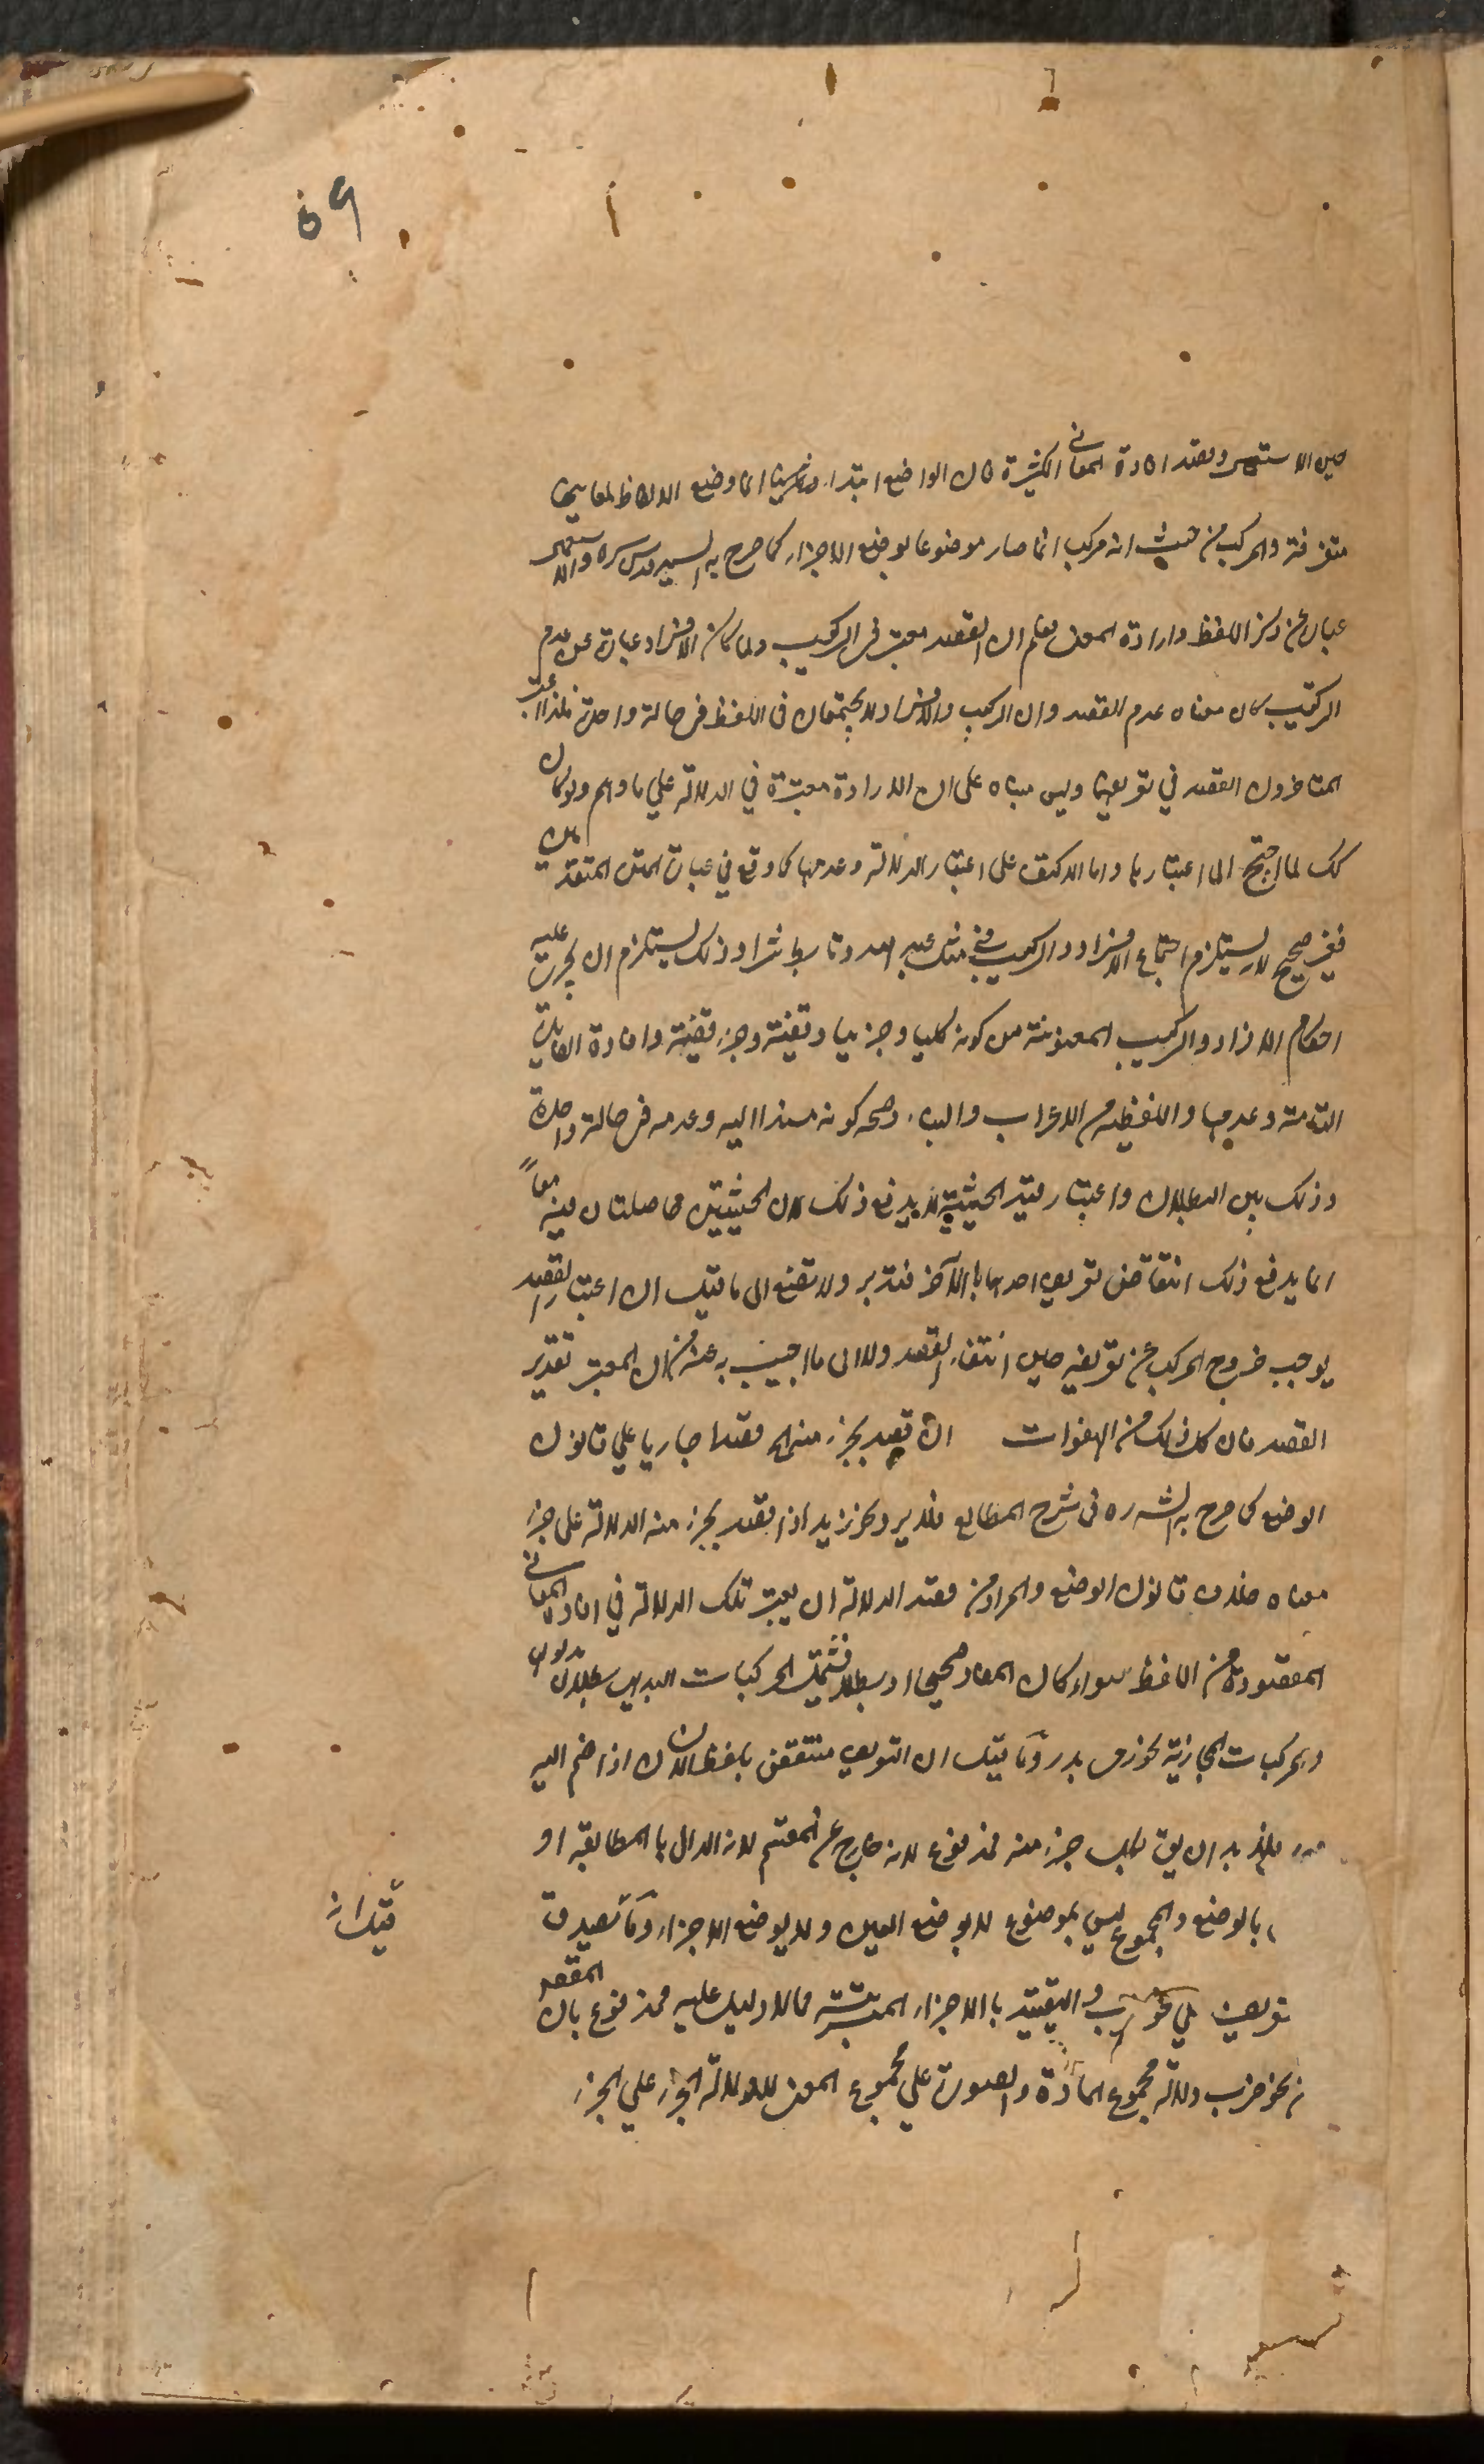 ٥٩
حين الاستعمال وبقصد افادة المعاني الكثيرة فان الواضع ابتداء انما وضع الالفاظ لمعانيها
متفرقة والمركب من حيث انه مركب انما صار موضوعا بوضع الاجزاء كما صرح به السيد قدس سره والاستعمال
عبارة عن ذكر اللفظ وارادة المعنى فعلم ان القصد معتبر في التركيب ولما كان الافراد عبارة عن عدم
التركيب كان معناه عدم القصد وان التركيب والافراد لا يجتمعان في اللفظ في حالة واحدة فلذا اعتبر
المتاخرون القصد في تعريفهما وليس مبناه على ان الارادة معتبرة في الدلالة على ما وهم ولو كان
كك لما احتيج الى اعتبارها واما الاكتفاء على اعتبار الدلالة وعدمها كما وقع في عبارة المتقدمين
فغير صحيح لاستلزام اجتماع الافراد والتركيب في مثل عبد الله وتابط شرا وذلك يستلزم ان يجري عليه
احكام الافراد والتركيب المعنوية من كونه كليا وجزئيا وقضية وجزء قضية وافادة الفايدة
التامة وعدمها واللفظية من الاعراب والبناء وصحة كونه مسندا اليه وعدمه في حالة واحدة
وذلك بين البطلان واعتبار قيد الحيثية لا يدفع ذلك لان الحيثيتين حاصلتان فيه معاً
انما يدفع ذلك انتقاض تعريف احدهما بالآخر فتدبر ولا تصغ الى ما قيل ان اعتبار القصد
يوجب خروج المركب عن تعريفه حين انتفاء القصد ولا الى ما اجيب به عنه من ان المعتبر تقدير
القصد فان كل ذلك من الهفوات ان قصد بجزء منه الخ قصدا جاريا على قانون
الوضع كما صرح به الش ره في شرح المطالع فلا يرد نحو زيد اذا قصد بجزء منه الدلالة على جزء
معناه خلاف قانون الوضع والمراد من قصد الدلالة ان يعتبر تلك الدلالة في افادة المعاني
المقصودة من اللفظ سواء كان المعنى صحيحا او باطلا فتشمل المركبات البديهي بطلان مدلولها
والمركبات المجازية نحو زيد وما قيل ان التعريف منتقض بلفظ الانسان اذا ضم اليه
مهمل بان يق جزء منه فمدفوع لانه خارج عن المقسم لانه الدال بالمطابقة او
بالوضع والمجموع ليس بموضوع لا بوضع العين ولا بوضع الاجزاء وما قيل انه يصدق
تعريف على نحو ضرب والتقييد بالاجزاء المترتبة مما لا دليل عليه فمدفوع بان المقصود
نحو ضرب دلالة مجموع المادة والصورة على مجموع المعنى لا دلالة الجزء على الجزء